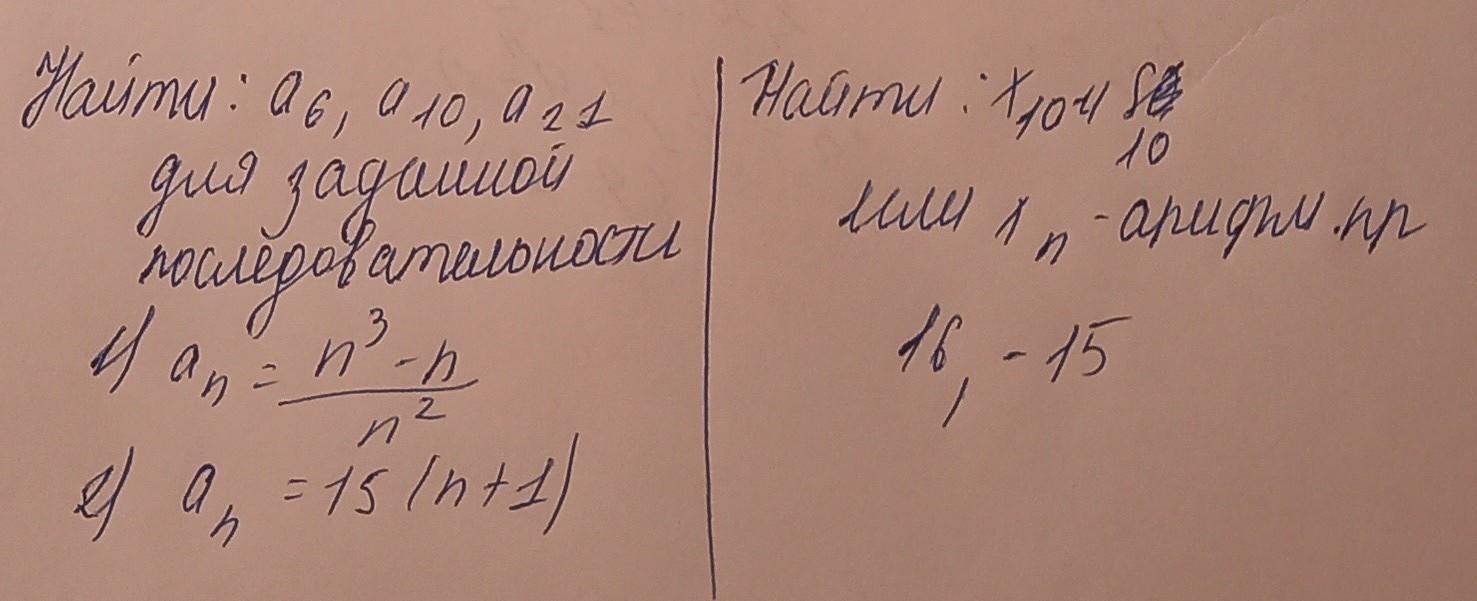 Найти: a₆, a₁₀, a₂₁
для заданной
последовательности
1) aₙ = (n³ - n)/n²
2) aₙ = 15 (n+1)
Найти: x₁₀ и S
10
или xₙ - арифм. пр
16, - 15